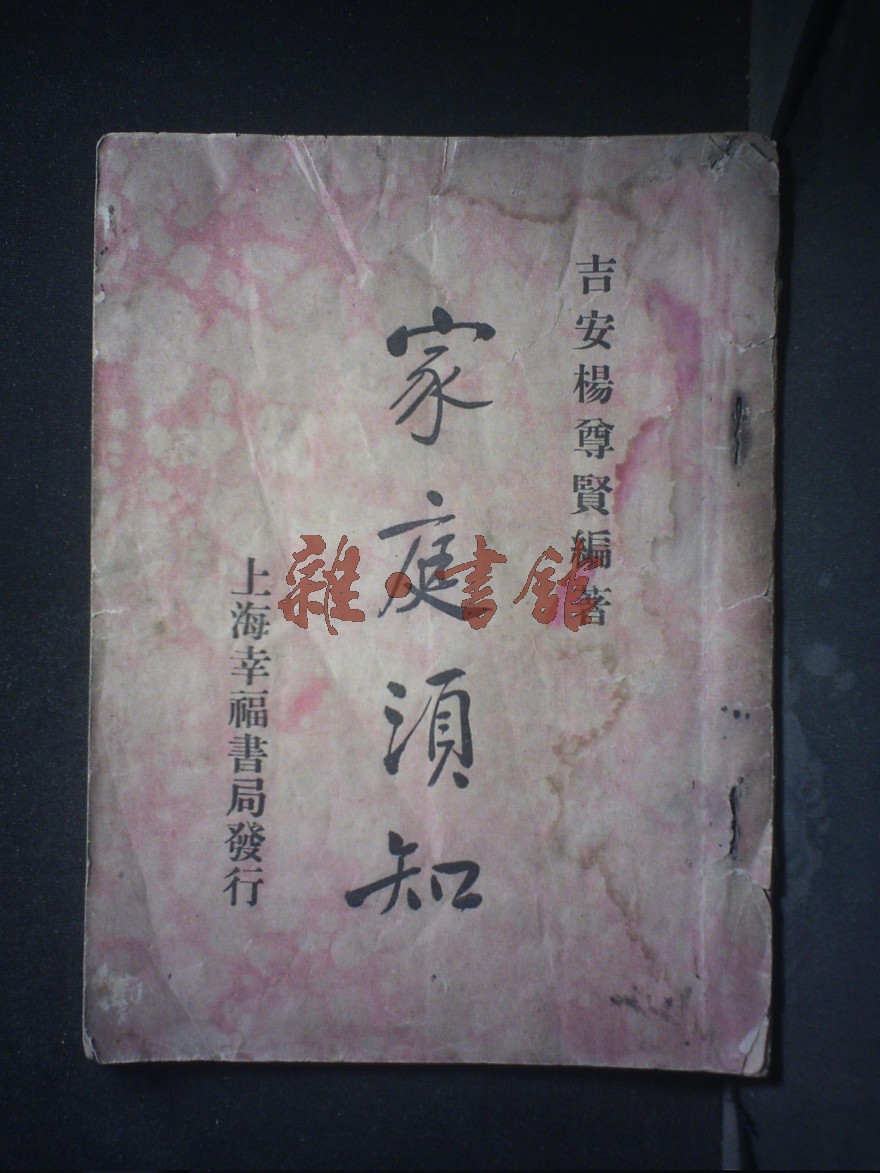 吉安楊尊賢編著
家庭須知
上海幸福書局發行
雜·書館